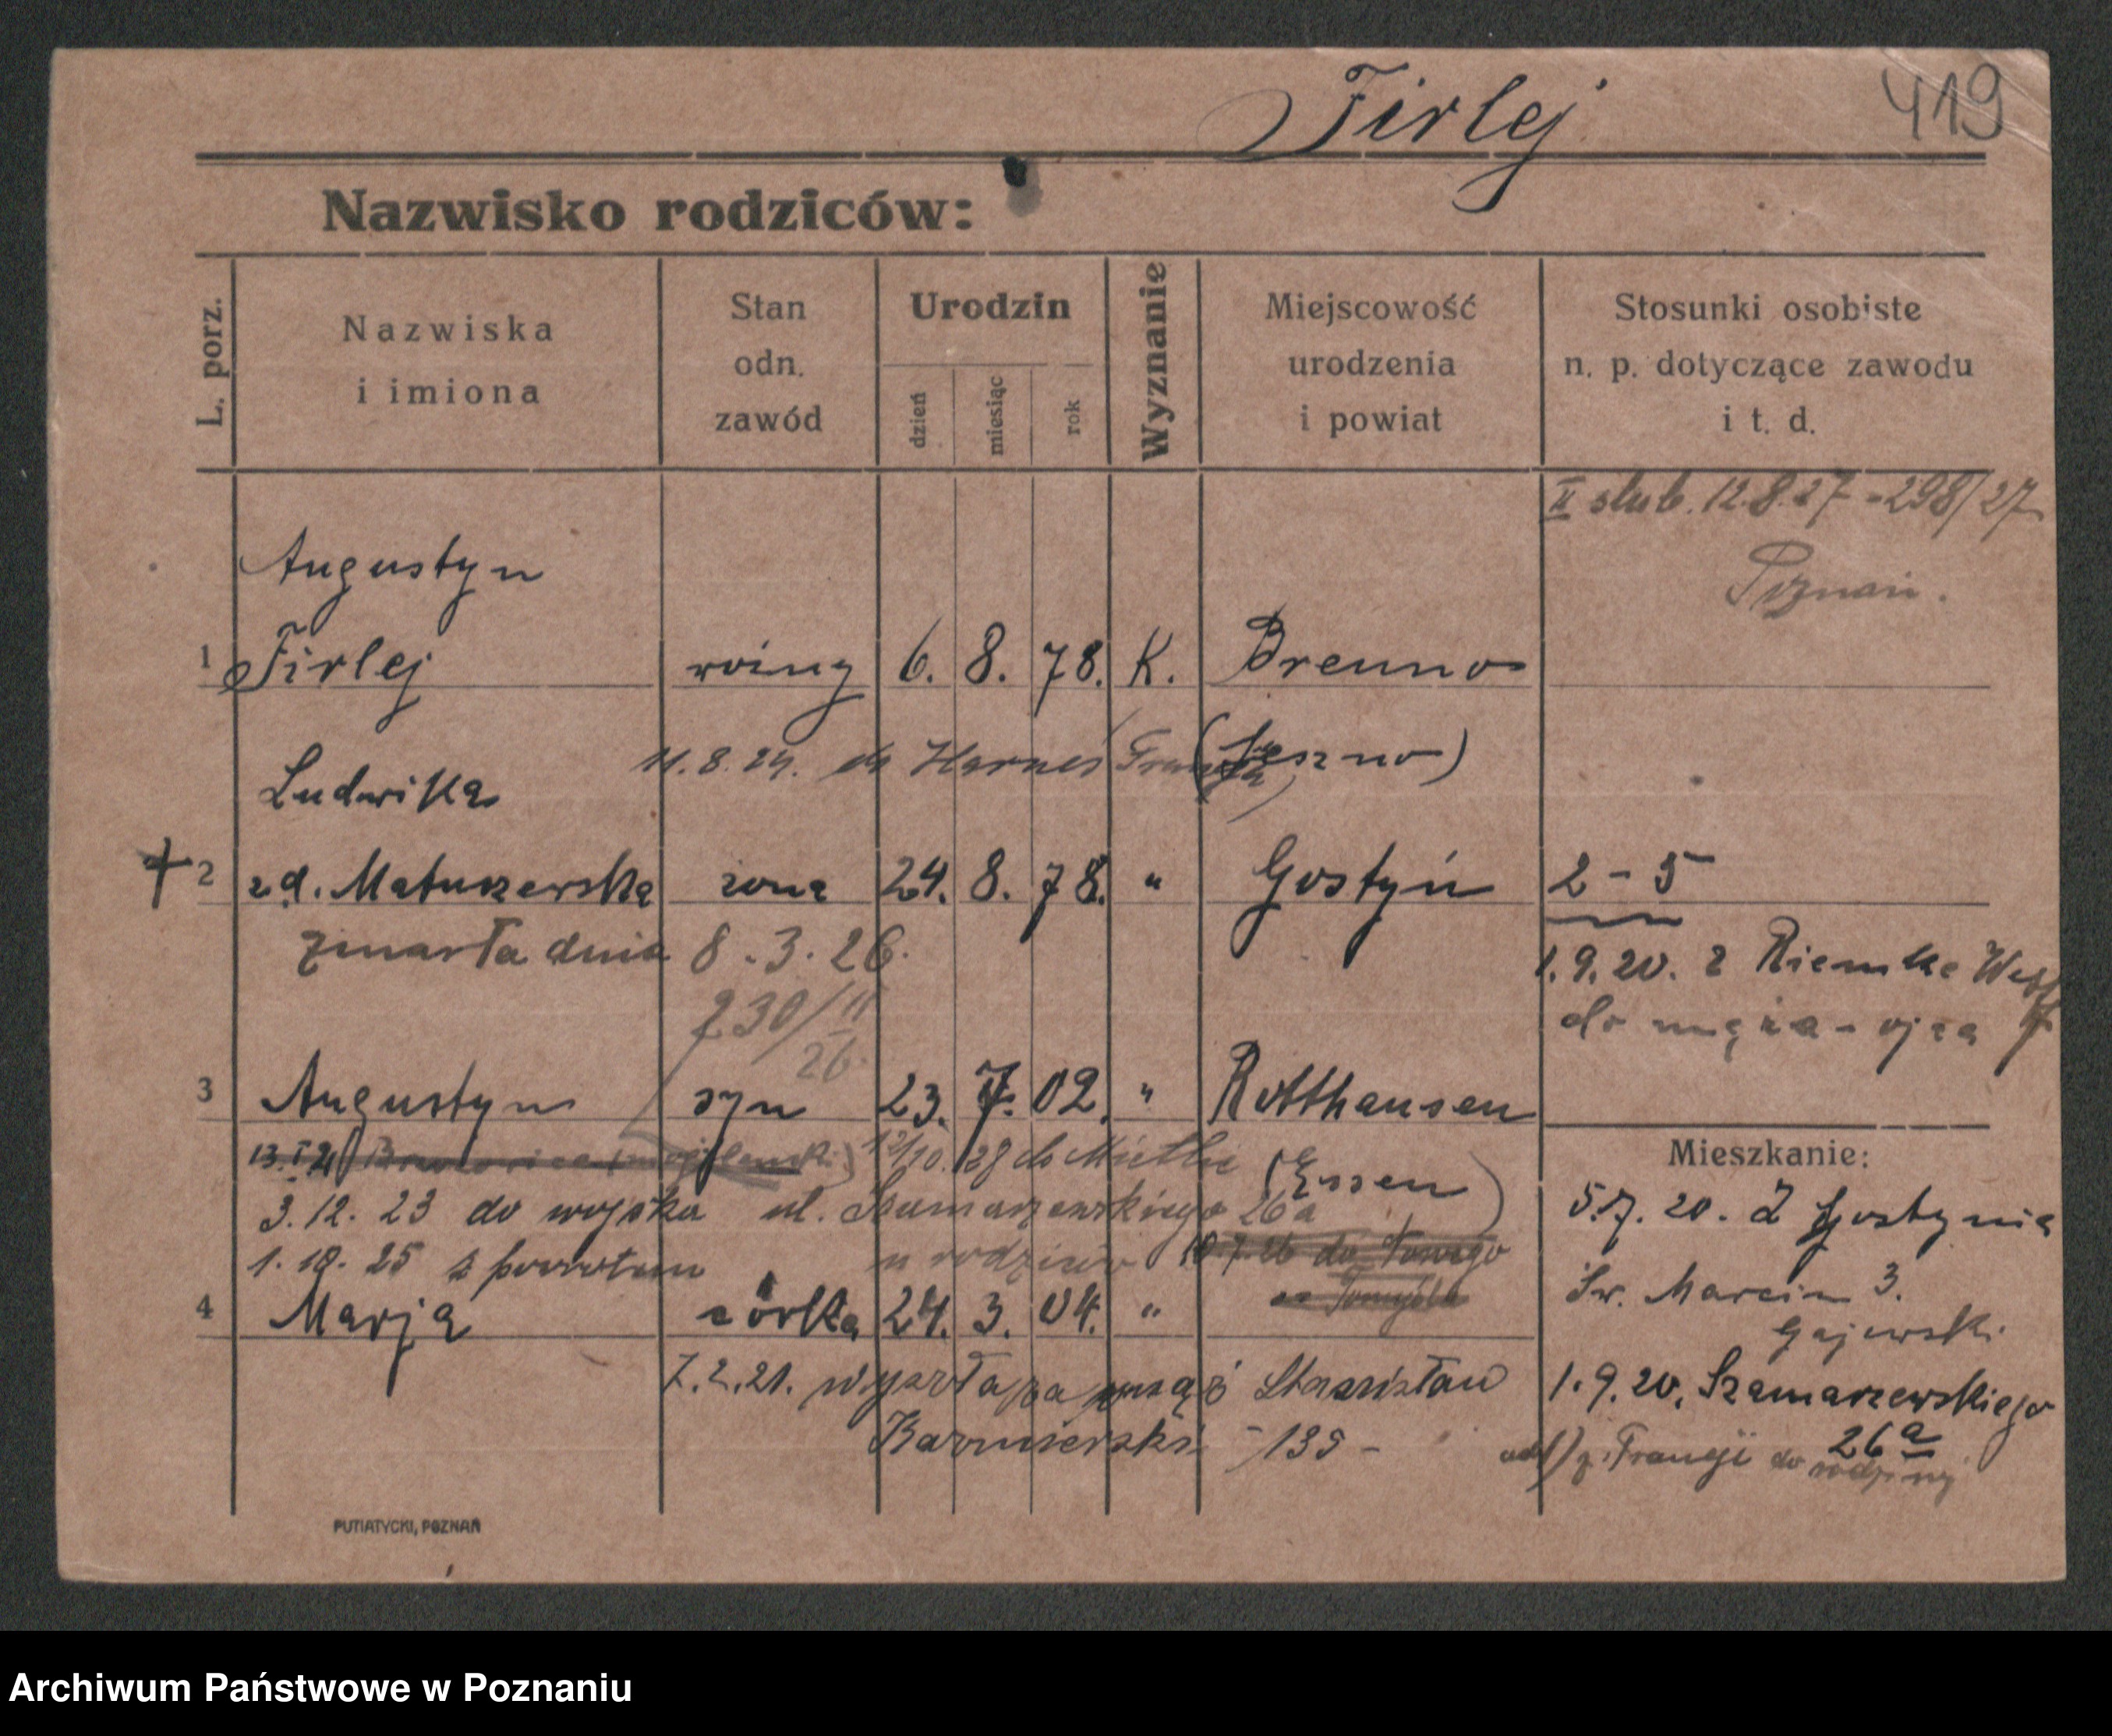 Firlej 419
Nazwisko rodziców:
L. porz.
Nazwiska
i imiona
Stan
odn.
zawód
Urodzin
dzień
miesiąc
rok
Wyznanie
Miejscowość
urodzenia
i powiat
Stosunki osobiste
n. p. dotyczące zawodu
i t. d.
II ślub. 12.8.27 - 298/27
Poznań.
Augustyn
1 Firlej 6. 8. 78. K. Brenno
11.8.24. do Harnes (Leszno)
Ludwika
2 zd. Matuszewska żona 24. 8. 78. " Gostyń 2-5
zmarła dnia 8.3.26.
230/II
26.
1.9.20. z Riemke Westf
do męża - ojca
3 Augustyn syn 23. 7. 02. " Rotthausen
12/10. 28 do
(Essen)
Mieszkanie:
3.12.23 do wojska ul. Szamarzewskiego 26a
5.7.20. z Gostynia
1.10.25 z powrotem u rodziców 10.7.26 do Nowego
Tomyśla
Św. Marcin 3.
Gajewski
4 Marja córka 24. 3. 04. "
7.2.21. wyszła za mąż Stanisław
Kaźmierski - 135 -
1.9.20. Szamarzewskiego
26a
z Francji do rodziny
PUTIATYCKI, POZNAŃ
Archiwum Państwowe w Poznaniu